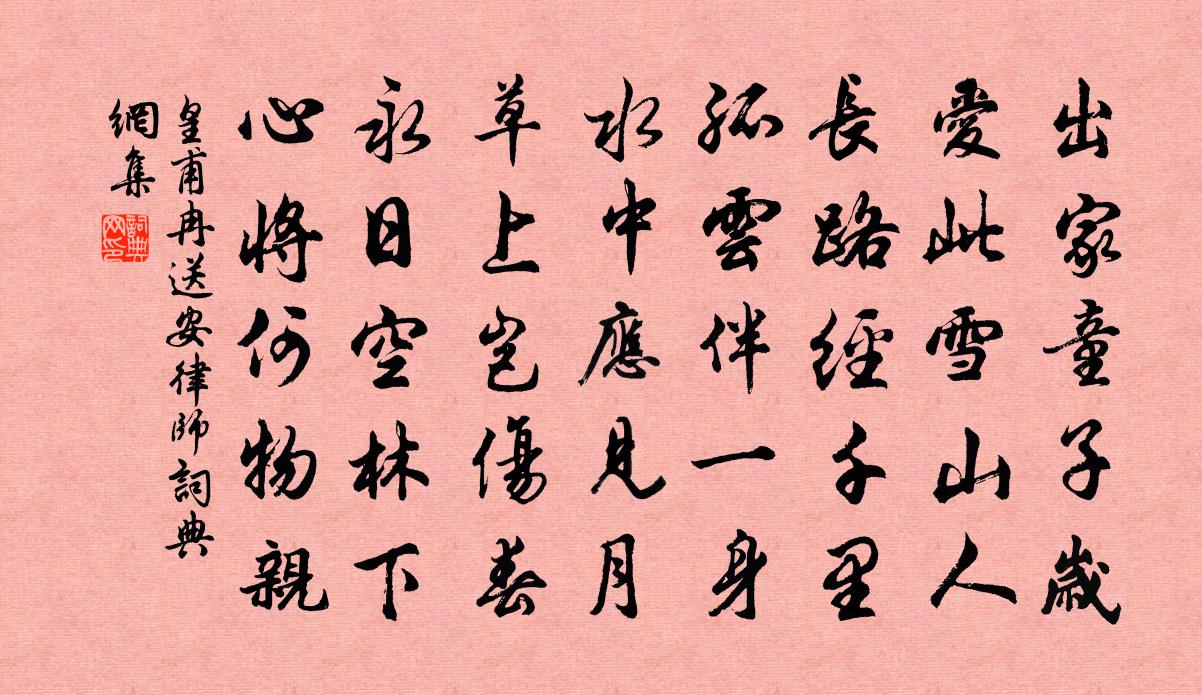 出家童子歲
愛此雪山人
長路經千里
孤雲伴一身
水中應見月
草上豈傷春
永日空林下
心將何物親
皇甫冉送安律師詞典
網集
詞典
网印